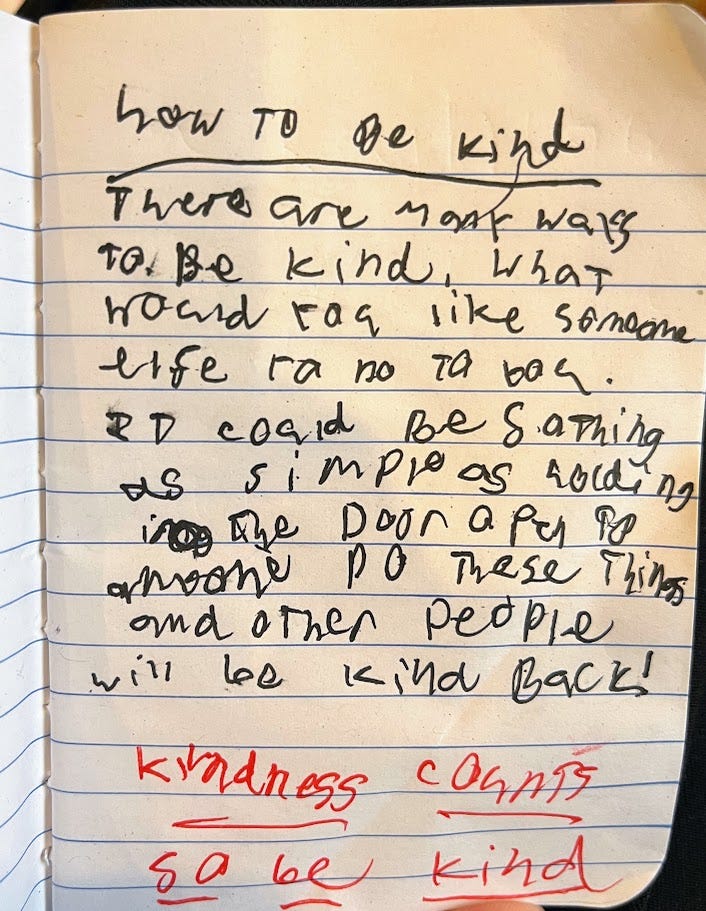 how TO Be kind
There are many ways
TO Be kind, What
Would you like someone
life to do to you.
IT could Be Sathing
as simple as holding
the Door apen to
anyone DO These Things
and other people
will be kind Back!
kindness counts
so be kind